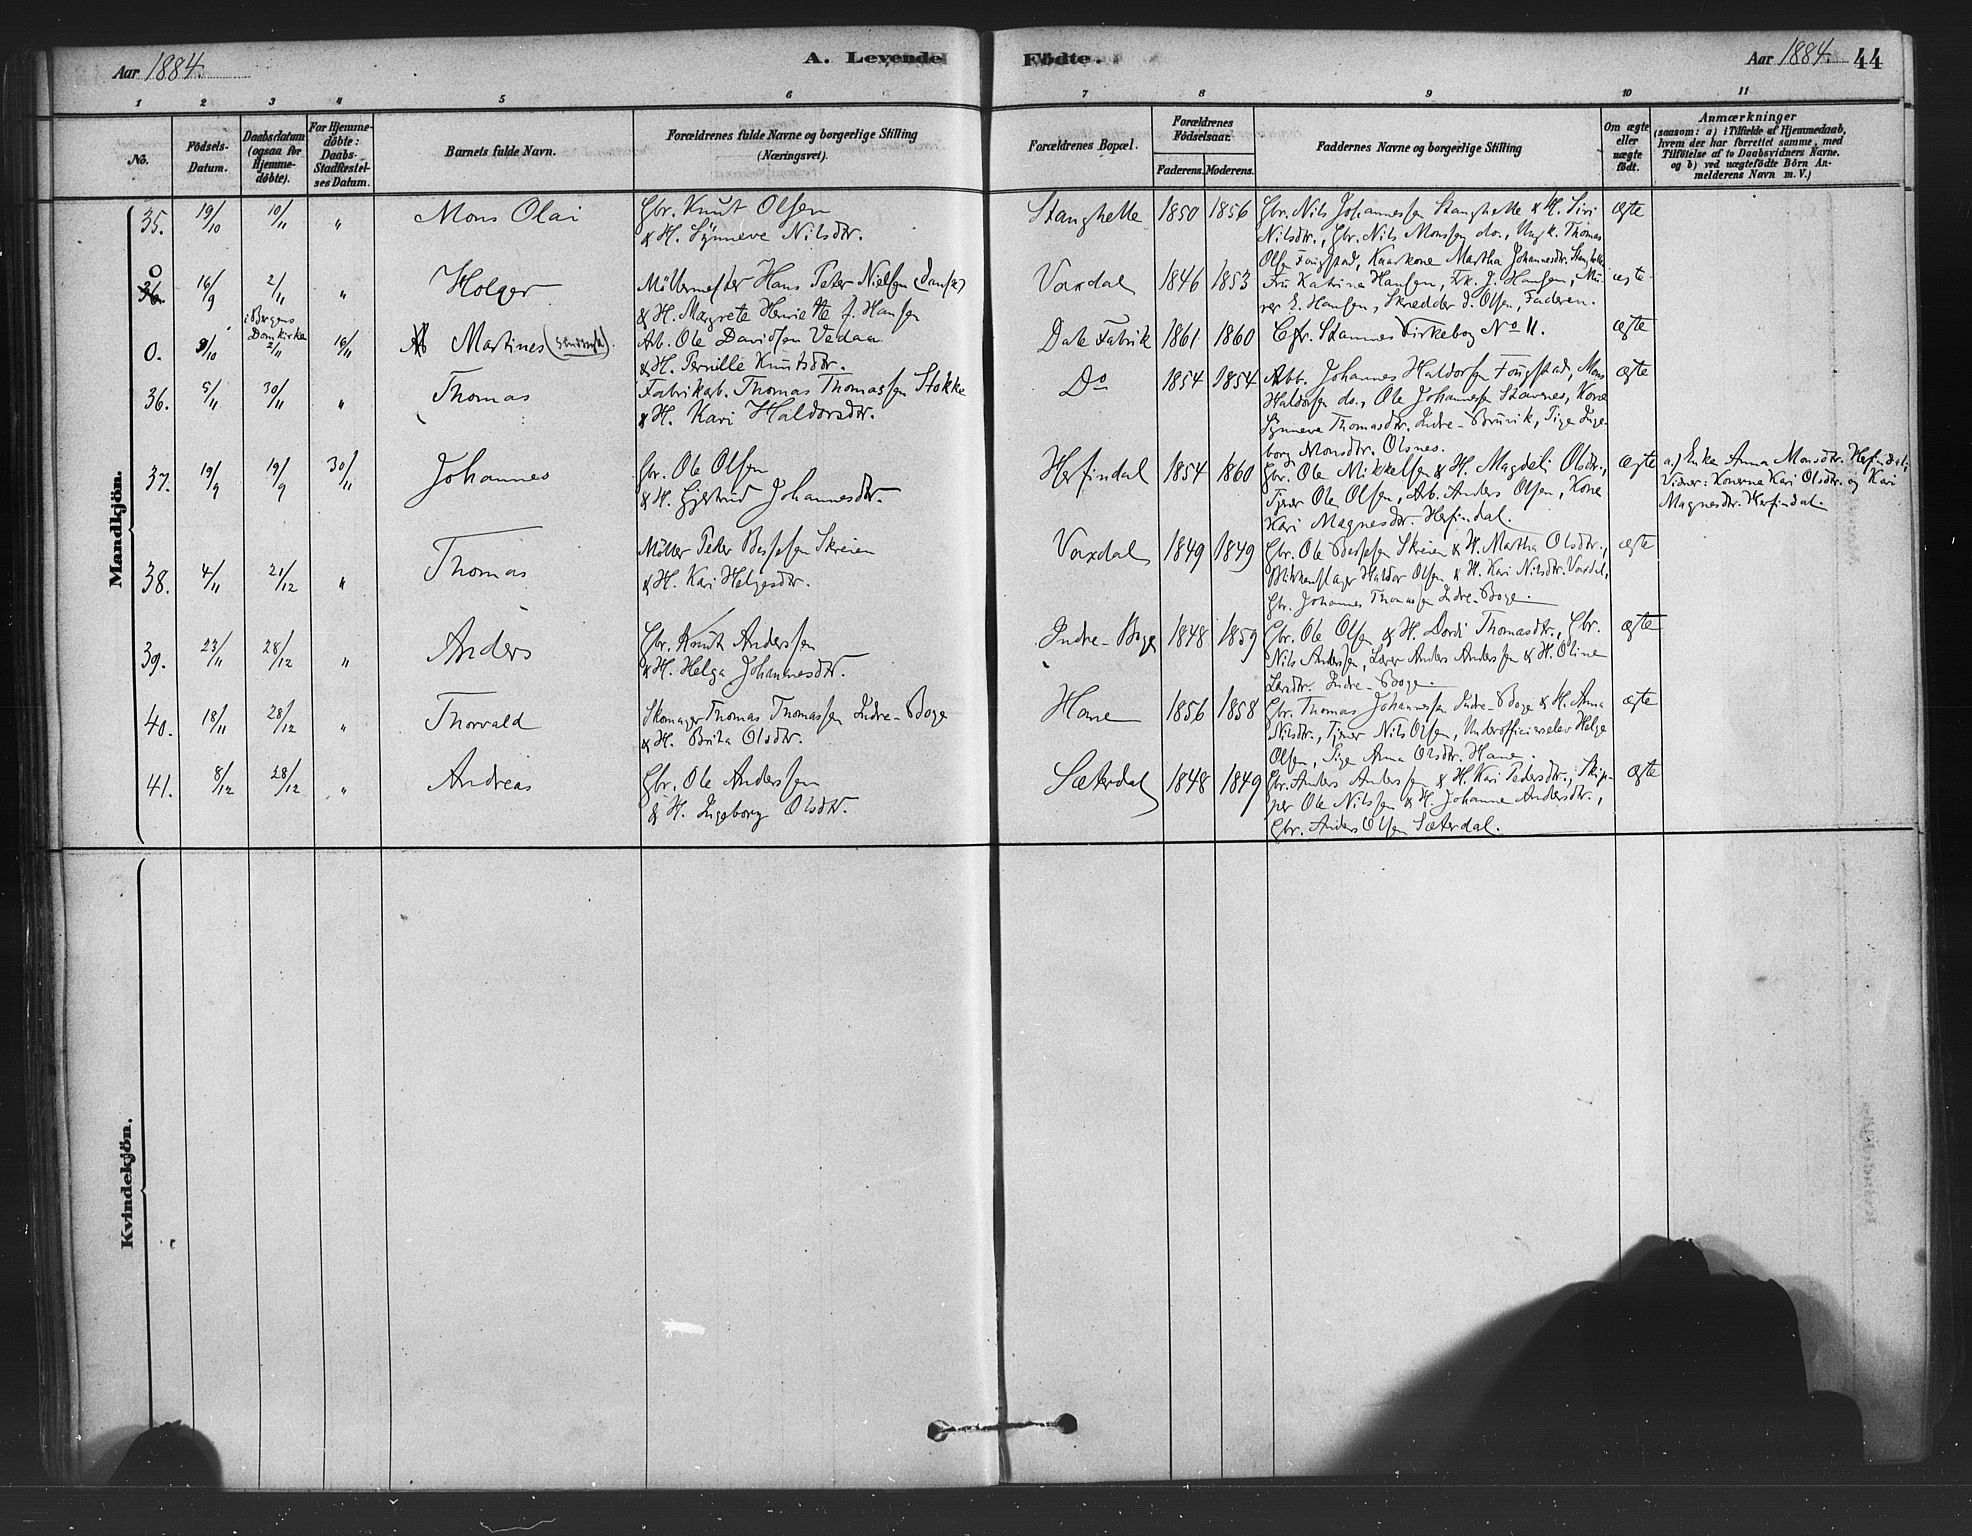 Aar 1884.
A. Levende Födte.
Aar 1884. 44
1 2 3 4 5 6 7 8 9 10 11
No.
Födsels-Datum.
Daabsdatum (ogsaa for Hjemme-döbte).
For Hjemme-döbte: Daabs-Stadfæstel-ses Datum.
Barnets fulde Navn.
Forældrenes fulde Navne og borgerlige Stilling (Næringsvei).
Forældrenes Bopæl.
Forældrenes Födselsaar.
Faderens. Moderens.
Faddernes Navne og borgerlige Stilling
Om ægte eller uægte födt.
Anmærkninger
(saasom: a) i Tilfælde af Hjemmedaab, hvem der har forrettet samme, med Tilföielse af to Daabsvidners Navne, og b) ved uægtefödte Börn An-melderens Navn m. V.)
Mandkjön.
35. 19/10 10/11 " Mons Olai
Gbr. Knut Olsen
& H. Synneve Nilsdtr.
Stanghelle 1850 1856
Gbr. Nils Johannessen Stanghelle & H. Siri
Nilsdtr., Gbr. Nils Monssen do., Ungk. Thomas
Olsen Fougstad, Kaarkone Martha Johannesdtr. Stanghelle
ægte
0 36. 16/9 2/11 " Holger
Möllermester Hans Peter Nielsen (dansk)
& H. Margrete Henriette f. Hansen
Vaxdal 1846 1853
Fru Katrina Hansen, Frk. J. Hansen, Mu-
rer E. Hansen, Skrædder d. Olsen, Faderen.
ægte
0. 9/10 i Bergens Domkirke 2/11 16/11 Martines
Arb. Ole Davidsen Vedaa
& H. Pernille Knutsdtr.
Dale Fabrik 1861 1860
Cfr. Stamnes Kirkebog No 11.
ægte
36. 5/11 30/11 " Thomas
Fabrikarb. Thomas Thomassen Stokke
& H. Kari Haldorsdtr.
Do 1854 1854
Arb. Johannes Haldorsen Fougstad, Mons
Haldorsen do., Ole Johannessen Stavenes, Kone
Synneve Thomasdtr. Indre-Bruvik, Pige Inge-
borg Monsdtr. Olsnes.
ægte
37. 19/9 19/9 30/11 Johannes
Gbr. Ole Olsen
& H. Gjertrud Johannesdtr.
Herfindal 1854 1860
Gbr. Ole Mikkelsen & H. Magdeli Olsdtr.,
Tjener Ole Olsen, Arb. Anders Olsen, Kone
Kari Magnesdtr. Herfindal.
ægte
a.) Enke Anna Monsdtr. Herfindal;
Vidner: Konerne Kari Olsdtr. og Kari
Magnesdtr. Herfindal.
38. 4/11 21/12 " Thomas
Möller Peter Skreien
& H. Kari Helgesdtr.
Vaxdal 1849 1849
Gbr. Ole Skreien & H. Martha Olsdtr.,
Blikkenslager Haldor Olsen & H. Kari Nilsdtr. Vaxdal,
Gbr. Johannes Thomassen Indre-Boge.
ægte
39. 23/11 28/12 " Anders
Gbr. Knut Anderssen
& H. Helga Johannesdtr.
Indre-Boge 1848 1859
Gbr. Ole Olsen & H. Dordi Thomasdtr., Gbr.
Nils Anderssen, Lærer Anders Anderssen & H. Oline
Larsdtr. Indre-Boge.
ægte
40. 18/11 28/12 " Thorvald
Skomager Thomas Thomassen Indre-Boge
& H. Brita Olsdtr.
Hane 1856 1858
Gbr. Thomas Johannessen Indre-Boge & H. Anna
Nilsdtr., Tjener Nils Olsen, Underofficierselev Helge
Olsen, Pige Anna Olsdtr. Hane.
ægte
41. 8/12 28/12 " Andreas
Gbr. Ole Anderssen
& H. Ingeborg Olsdtr.
Sæterdal 1848 1849
Gbr. Anders Anderssen & H. Kari Pedersdtr., Skip-
per Ole Nilssen & H. Johanna Andersdtr.,
Gbr. Anders Olsen Sæterdal.
ægte
Kvindekjön.